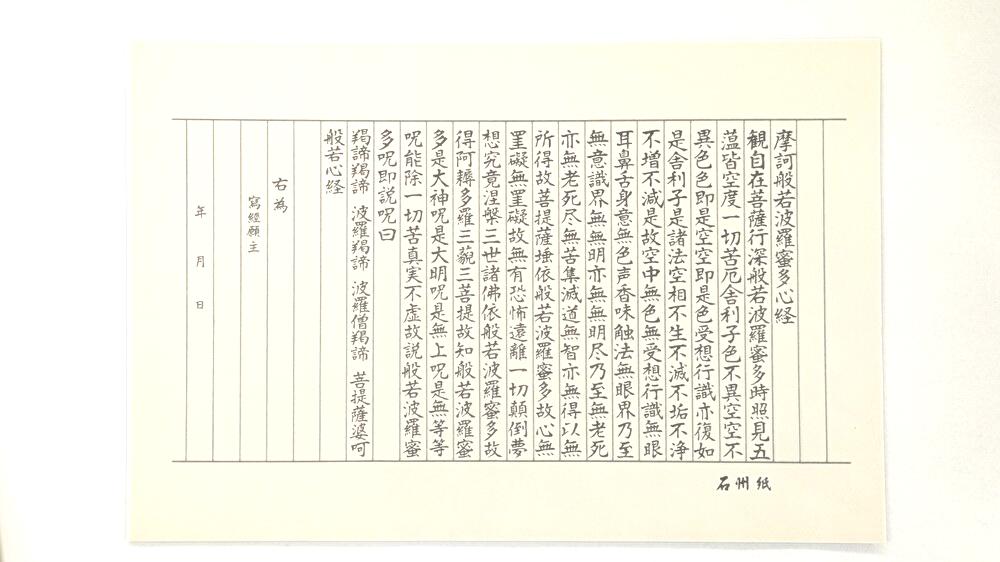 摩訶般若波羅蜜多心経
観自在菩薩行深般若波羅蜜多時照見五
蘊皆空度一切苦厄舎利子色不異空空不
異色色即是空空即是色受想行識亦復如
是舎利子是諸法空相不生不滅不垢不浄
不増不減是故空中無色無受想行識無眼
耳鼻舌身意無色声香味触法無眼界乃至
無意識界無無明亦無無明尽乃至無老死
亦無老死尽無苦集滅道無智亦無得以無
所得故菩提薩埵依般若波羅蜜多故心無
罣礙無罣礙故無有恐怖遠離一切顛倒夢
想究竟涅槃三世諸佛依般若波羅蜜多故
得阿耨多羅三藐三菩提故知般若波羅蜜
多是大神呪是大明呪是無上呪是無等等
呪能除一切苦真実不虚故説般若波羅蜜
多呪即説呪曰
羯諦羯諦 波羅羯諦 波羅僧羯諦 菩提薩婆呵
般若心経
右為
寫經願主
年 月 日
石州紙